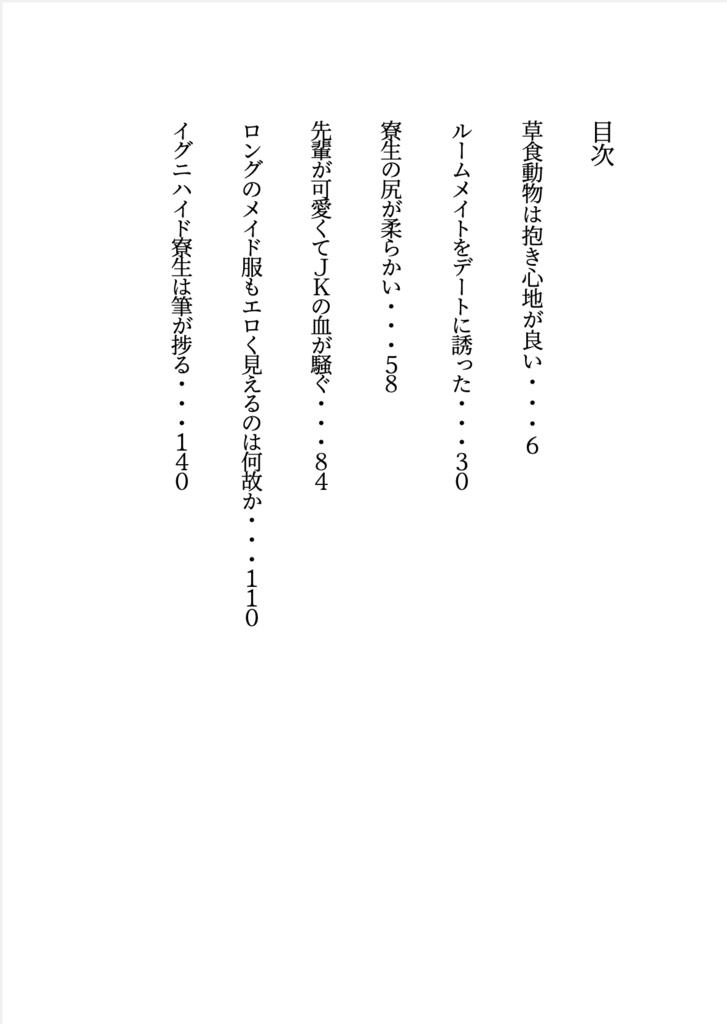 目次
草食動物は抱き心地が良い・・・６
ルームメイトをデートに誘った・・・３０
寮生の尻が柔らかい・・・５８
先輩が可愛くてＪＫの血が騒ぐ・・・８４
ロングのメイド服もエロく見えるのは何故か・・・１１０
イグニハイド寮生は筆が捗る・・・１４０